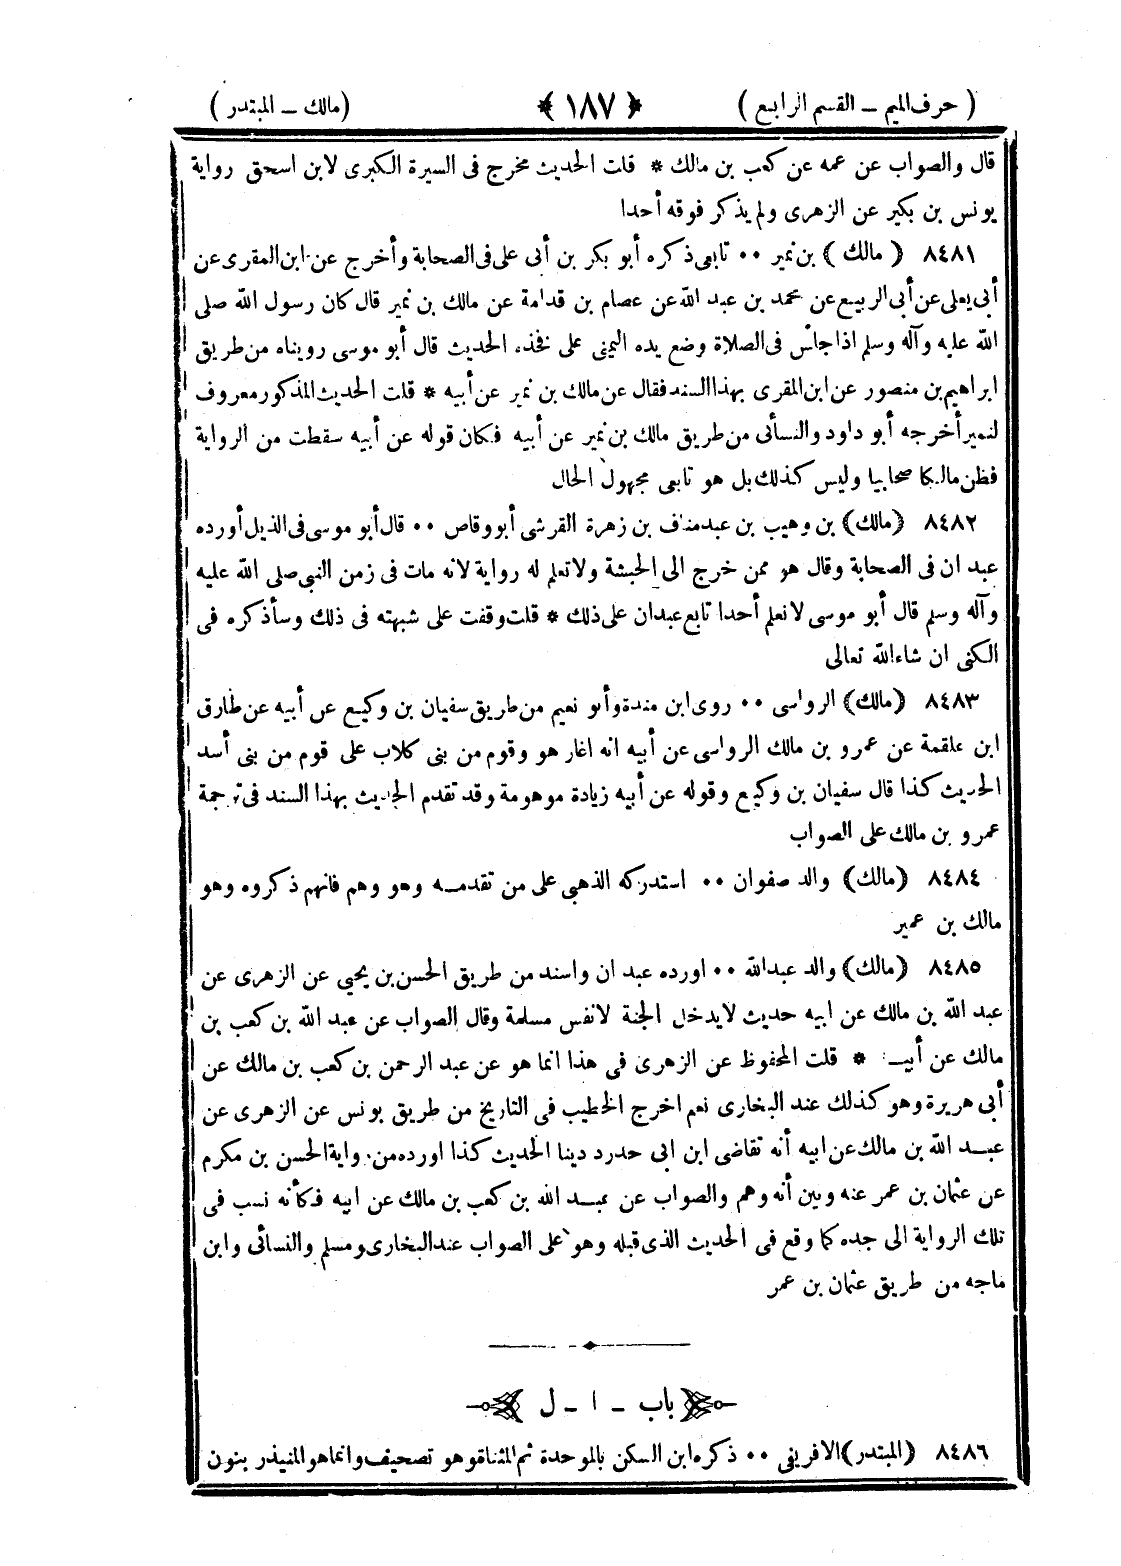 ( حرف الميم ــ القسم الرابع ) ﴿ ١٨٧ ﴾ (مالك ــ المبتدر)
قال والصواب عن عمه عن كعب بن مالك * قلت الحديث مخرج فى السيرة الكبرى لابن اسحق رواية
يونس بن بكير عن الزهرى ولم يذكر فوقه أحدا
٨٤٨١ ( مالك ) بن نمير ٠٠ تابعى ذكره أبو بكر بن أبى على فى الصحابة وأخرج عن ابن المقرى عن
أبى يعلى عن أبى الربيع عن محمد بن عبد الله عن عصام بن قدامة عن مالك بن نمير قال كان رسول الله صلى
الله عليه وآله وسلم اذا جلس فى الصلاة وضع يده اليمنى على فخذه الحديث قال أبو موسى رويناه من طريق
ابراهيم بن منصور عن ابن المقرى بهذا السند فقال عن مالك بن نمير عن أبيه * قلت الحديث المذكور معروف
لنمير أخرجه أبو داود والنسأى من طريق مالك بن نمير عن أبيه فكان قوله عن أبيه سقطت من الرواية
فظن مالكا صحابيا وليس كذلك بل هو تابعى مجهول الحال
٨٤٨٢ (مالك) بن وهيب بن عبد مناف بن زهرة القرشى أبو وقاص ٠٠ قال أبو موسى فى الذيل أورده
عبد ان فى الصحابة وقال هو ممن خرج الى الحبشة ولا تعلم له رواية لانه مات فى زمن النبى صلى الله عليه
وآله وسلم قال أبو موسى لا نعلم أحدا تابع عبدان على ذلك * قلت وقفت على شبهته فى ذلك وسأذكره فى
الكنى ان شاء الله تعالى
٨٤٨٣ (مالك) الرواسى ٠٠ روى ابن مندة وأبو نعيم من طريق سفيان بن وكيع عن أبيه عن طارق
ابن علقمة عن عمرو بن مالك الرواسى عن أبيه انه اغار هو وقوم من بنى كلاب على قوم من بنى أسد
الحديث كذا قال سفيان بن وكيع وقوله عن أبيه زيادة موهومة وقد تقدم الحديث بهذا السند فى ترجمة
عمرو بن مالك على الصواب
٨٤٨٤ (مالك) والد صفوان ٠٠ استدركه الذهبى على من تقدمه وهو وهم فانهم ذكروه وهو
مالك بن عمير
٨٤٨٥ (مالك) والد عبدالله ٠٠ اورده عبد ان واسند من طريق الحسن بن يحيى عن الزهرى عن
عبد الله بن مالك عن ابيه حديث لا يدخل الجنة لا نفس مسلمة وقال الصواب عن عبد الله بن كعب بن
مالك عن أبيه * قلت المحفوظ عن الزهرى فى هذا انما هو عن عبد الرحمن بن كعب بن مالك عن
أبى هريرة وهو كذلك عند البخارى نعم اخرج الخطيب فى التاريخ من طريق يونس عن الزهرى عن
عبد الله بن مالك عن ابيه أنه تقاضى ابن ابى حدرد دينا الحديث كذا اورده من رواية الحسن بن مكرم
عن عثمان بن عمر عنه وبين أنه وهم والصواب عن عبد الله بن كعب بن مالك عن ابيه فكأنه نسب فى
تلك الرواية الى جده كما وقع فى الحديث الذى قبله وهو على الصواب عند البخارى ومسلم والنسائى وابن
ماجه من طريق عثمان بن عمر
باب ــ ا ــ ل
٨٤٨٦ (المبتدر) الافريقى ٠٠ ذكره ابن السكن بالموحدة ثم المثناة وهو تصحيف وانما هو المنيذر بنون